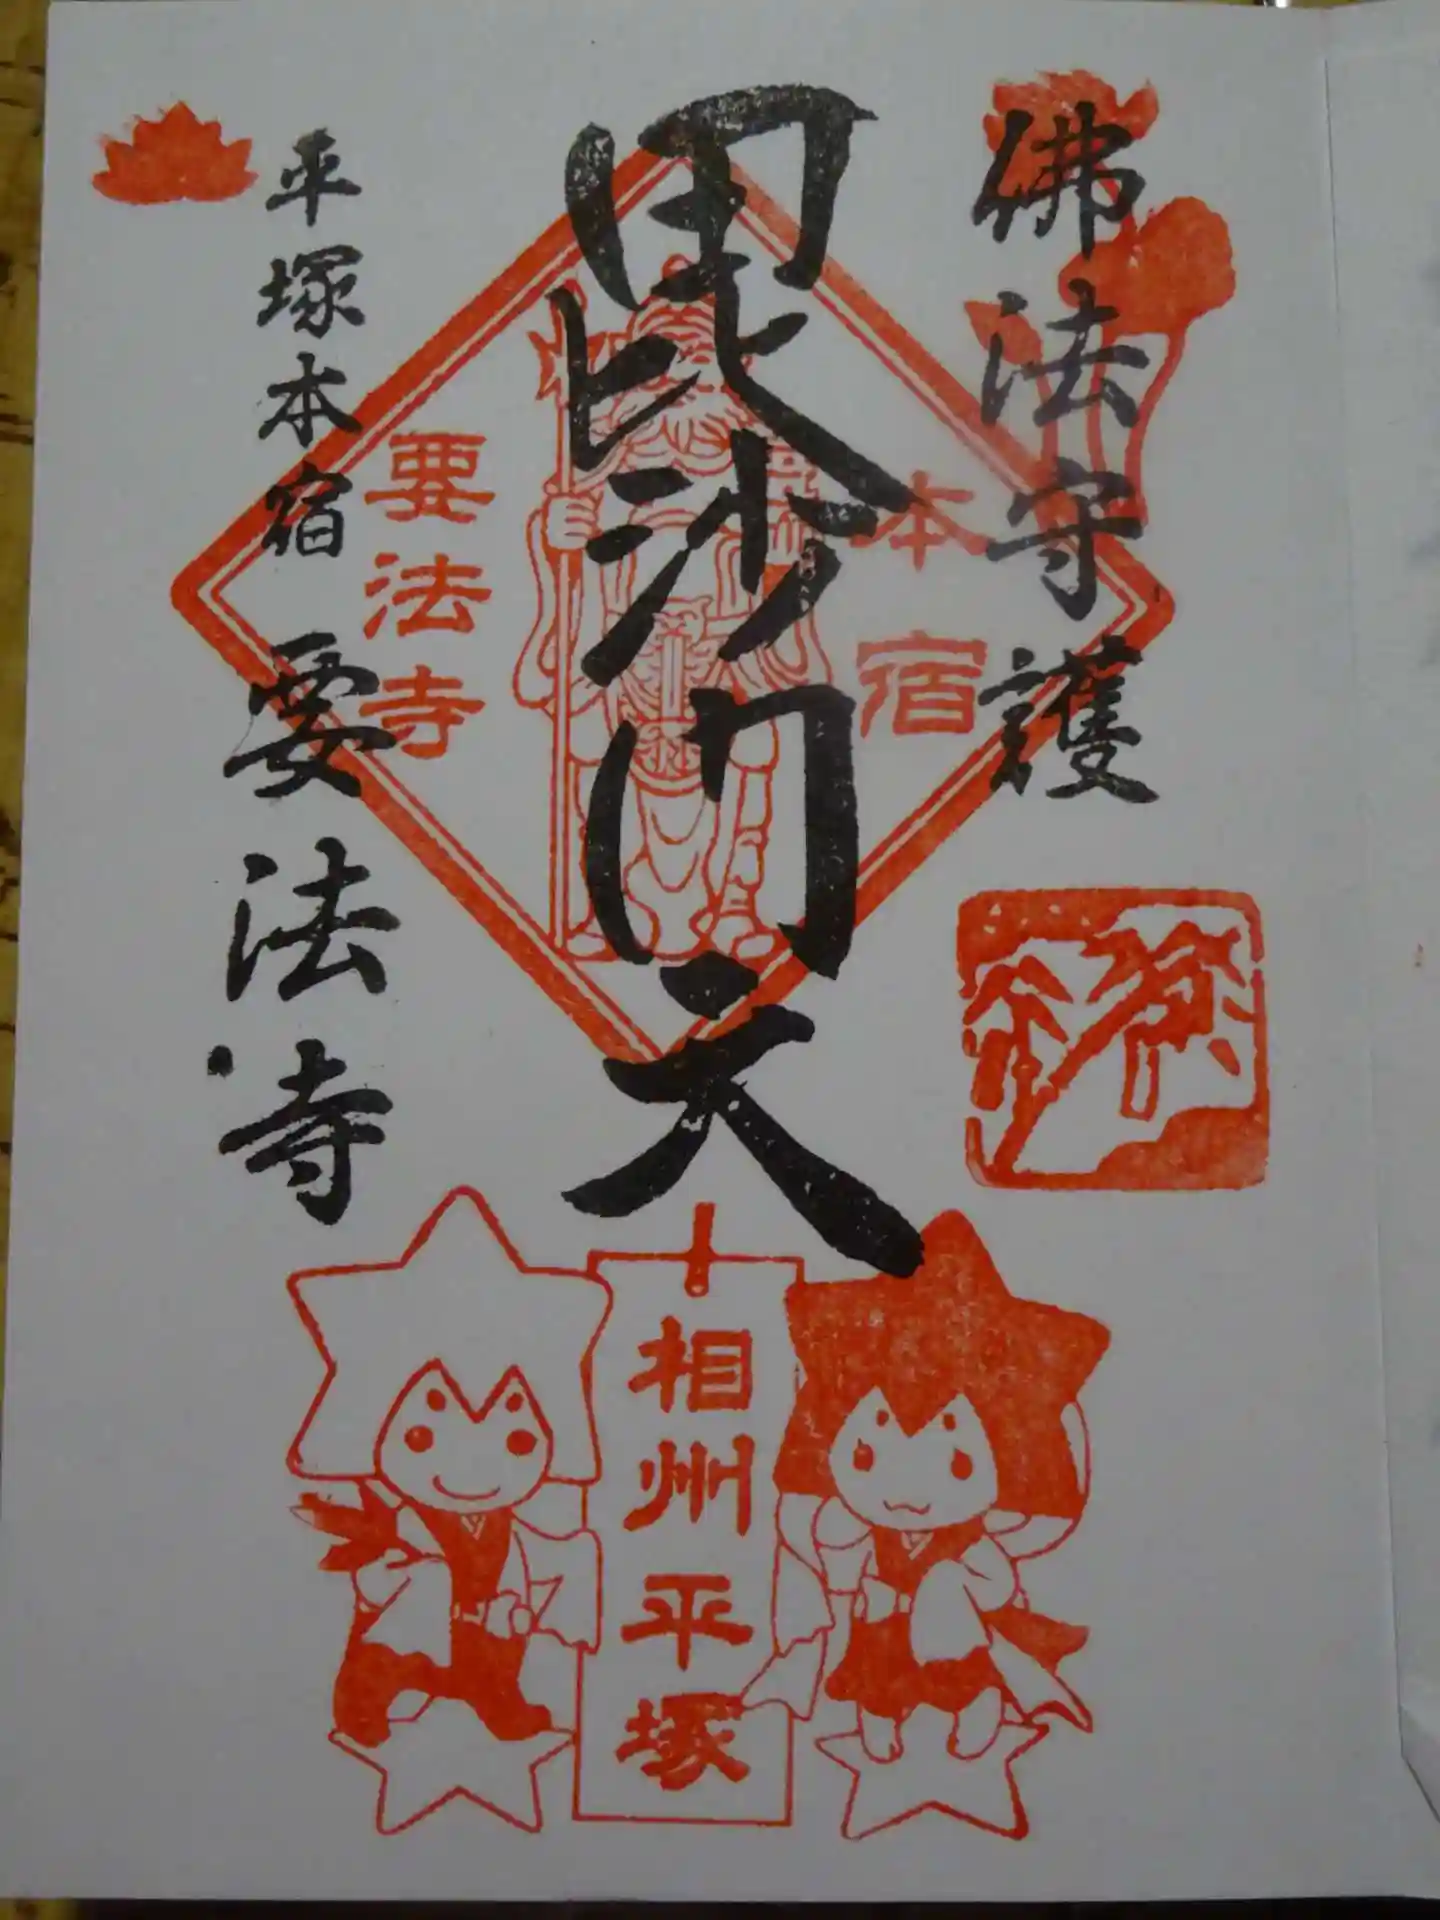 佛法守護
本宿
毘沙門天
要法寺
平塚本宿 要法寺
相州平塚